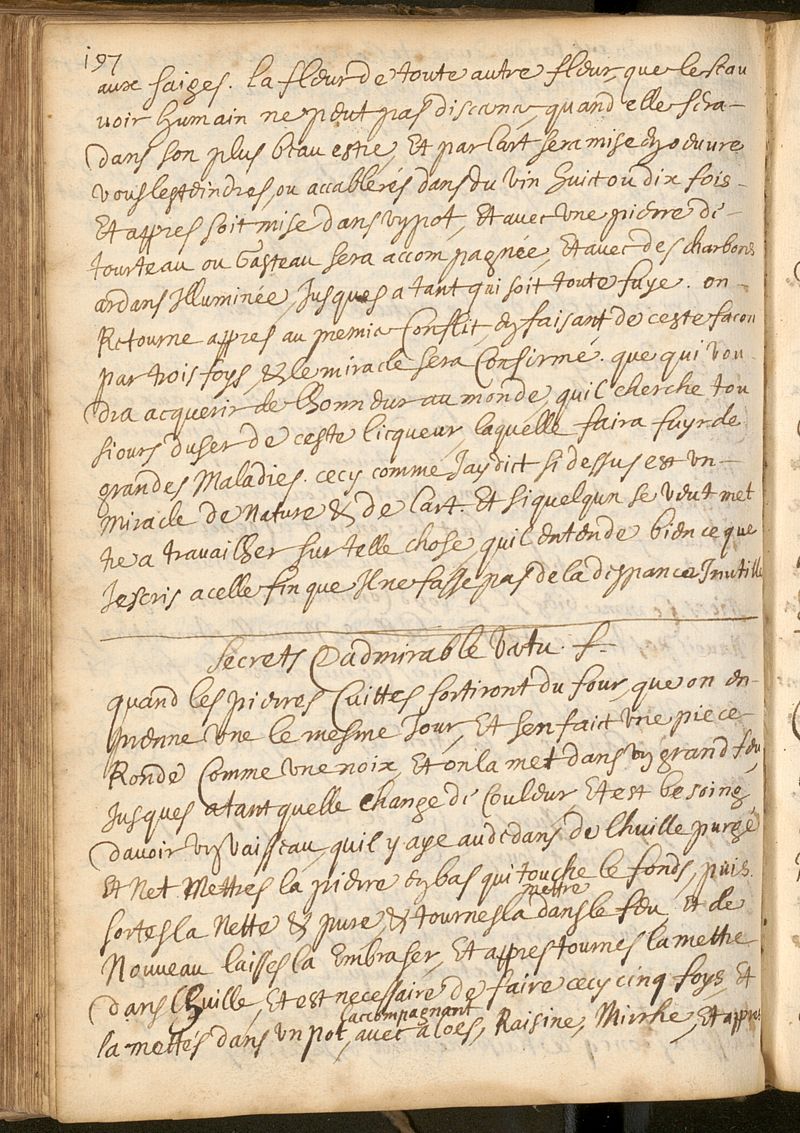 197
aux saiges. la fleur de toute autre fleur, que le scau
uoir humain ne peut pas discerner, quand elle sera
dans son plus beau estre, Et par lart sera mise en oeuure
vous lesteindres, ou accablerés dans du vin huict ou dix fois
Et appres soit mise dans vn pot, Et auec vne pierre de
tourteau ou Gasteau sera accompagnée, Et auec des charbons
ardans Illuminée, Jusques a tant qui soit toute fuye. on
Retourne appres au premier Conflit, en faisant de ceste facon
par trois foys, & le miracle sera Confirmé. que qui vou
dra acquerir de lhonneur au monde, quil cherche tou
siours duser de ceste licqueur, laquelle faira fuyr de
grandes Maladies. cecy comme Jay dict si dessus est vn
Miracle de Nature & de lart. Et si quelqun se veut met
tre a trauailher sur telle chose, quil entende bien ce que
Jescris a celle fin que Il ne fasse pas de la despance Inutille
Secrets Dadmirable Vertu. f
quand les pierres Cuittes sortiront du four, que on en
prenne vne le mesme Jour, Et sen faict vne piece
Ronde Comme vne noix, Et on la met dans vn grand feu,
Jusques a tant quelle change de Couleur, Et est besoing
dauoir vn vaisseau, quil y aye au dedans de lhuille purgé
Et Net. Mettres la pierre en bas qui touche le fonds, puis
mettre
sortes la Nette & pure, & tournes la dans le feu, Et de
Nouueau laisses la Embraser, Et appres tournes la mettre
dans lhuille, Et est necessaire de faire cecy cinq foys, Et
laccompagnant
la mettés dans vn pot, auec aloes, Raisine, Mirrhe, Et appres